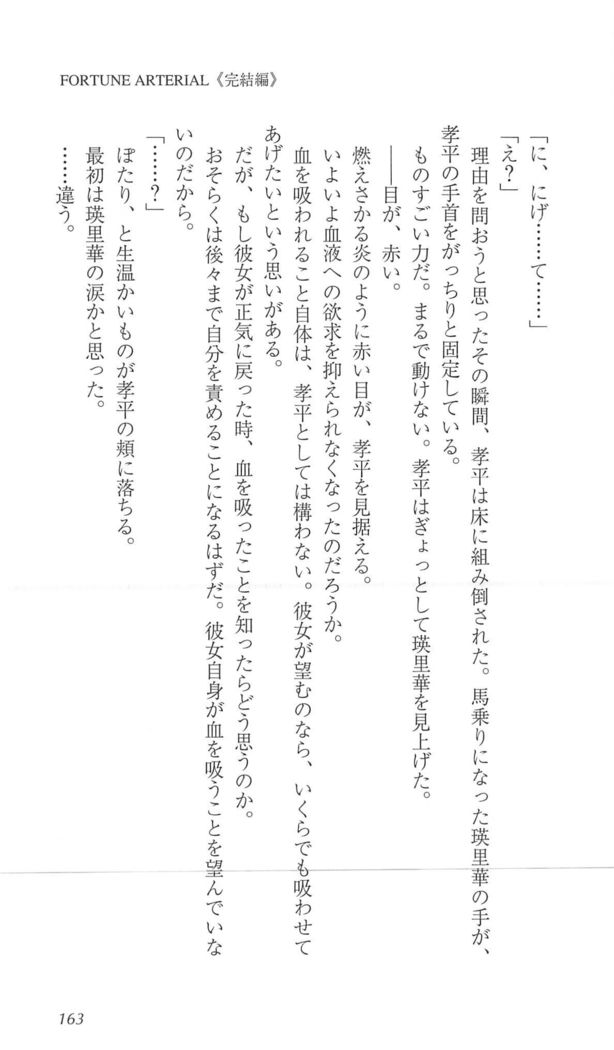 FORTUNE ARTERIAL《完結編》
「に、にげ……て……」
「え?」
理由を問おうと思ったその瞬間、孝平は床に組み倒された。馬乗りになった瑛里華の手が、
孝平の手首をがっちりと固定している。
ものすごい力だ。まるで動けない。孝平はぎょっとして瑛里華を見上げた。
――目が、赤い。
燃えさかる炎のように赤い目が、孝平を見据える。
いよいよ血液への欲求を抑えられなくなったのだろうか。
血を吸われること自体は、孝平としては構わない。彼女が望むのなら、いくらでも吸わせて
あげたいという思いがある。
だが、もし彼女が正気に戻った時、血を吸ったことを知ったらどう思うのか。
おそらくは後々まで自分を責めることになるはずだ。彼女自身が血を吸うことを望んでいな
いのだから。
「……?」
ぽたり、と生温かいものが孝平の頬に落ちる。
最初は瑛里華の涙かと思った。
……違う。
163